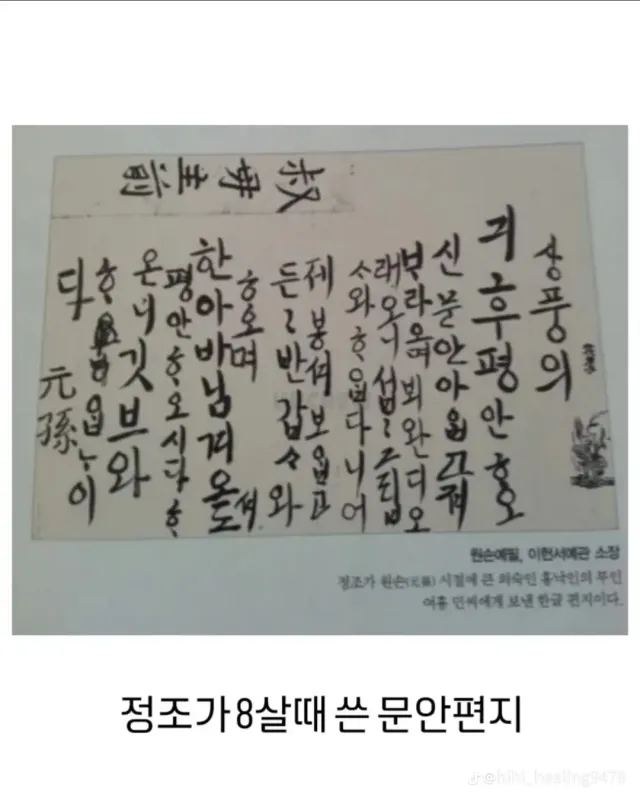 叔母主前
상풍의
긔후평안ᄒᆞ오
신문안아ᄋᆞᆸ고져
ᄇᆞ라오며뵈완디오
래오니섭〻그립
ᄉᆞ와ᄒᆞᄋᆞᆸ다니어
제봉셔보ᄋᆞᆸ고
든〻반갑ᄉᆞ와
ᄒᆞ오며
한아바님겨오셔도
평안ᄒᆞ오시다ᄒᆞ
온니깃브와
ᄒᆞᄋᆞᆸᄂᆞ이
다
元孫
원손예필, 이헌서예관 소장
정조가 원손(元孫) 시절에 큰 외숙인 홍낙인의 부인
여흥 민씨에게 보낸 한글 편지이다.
정조가 8살때 쓴 문안편지
@hihi_healing947